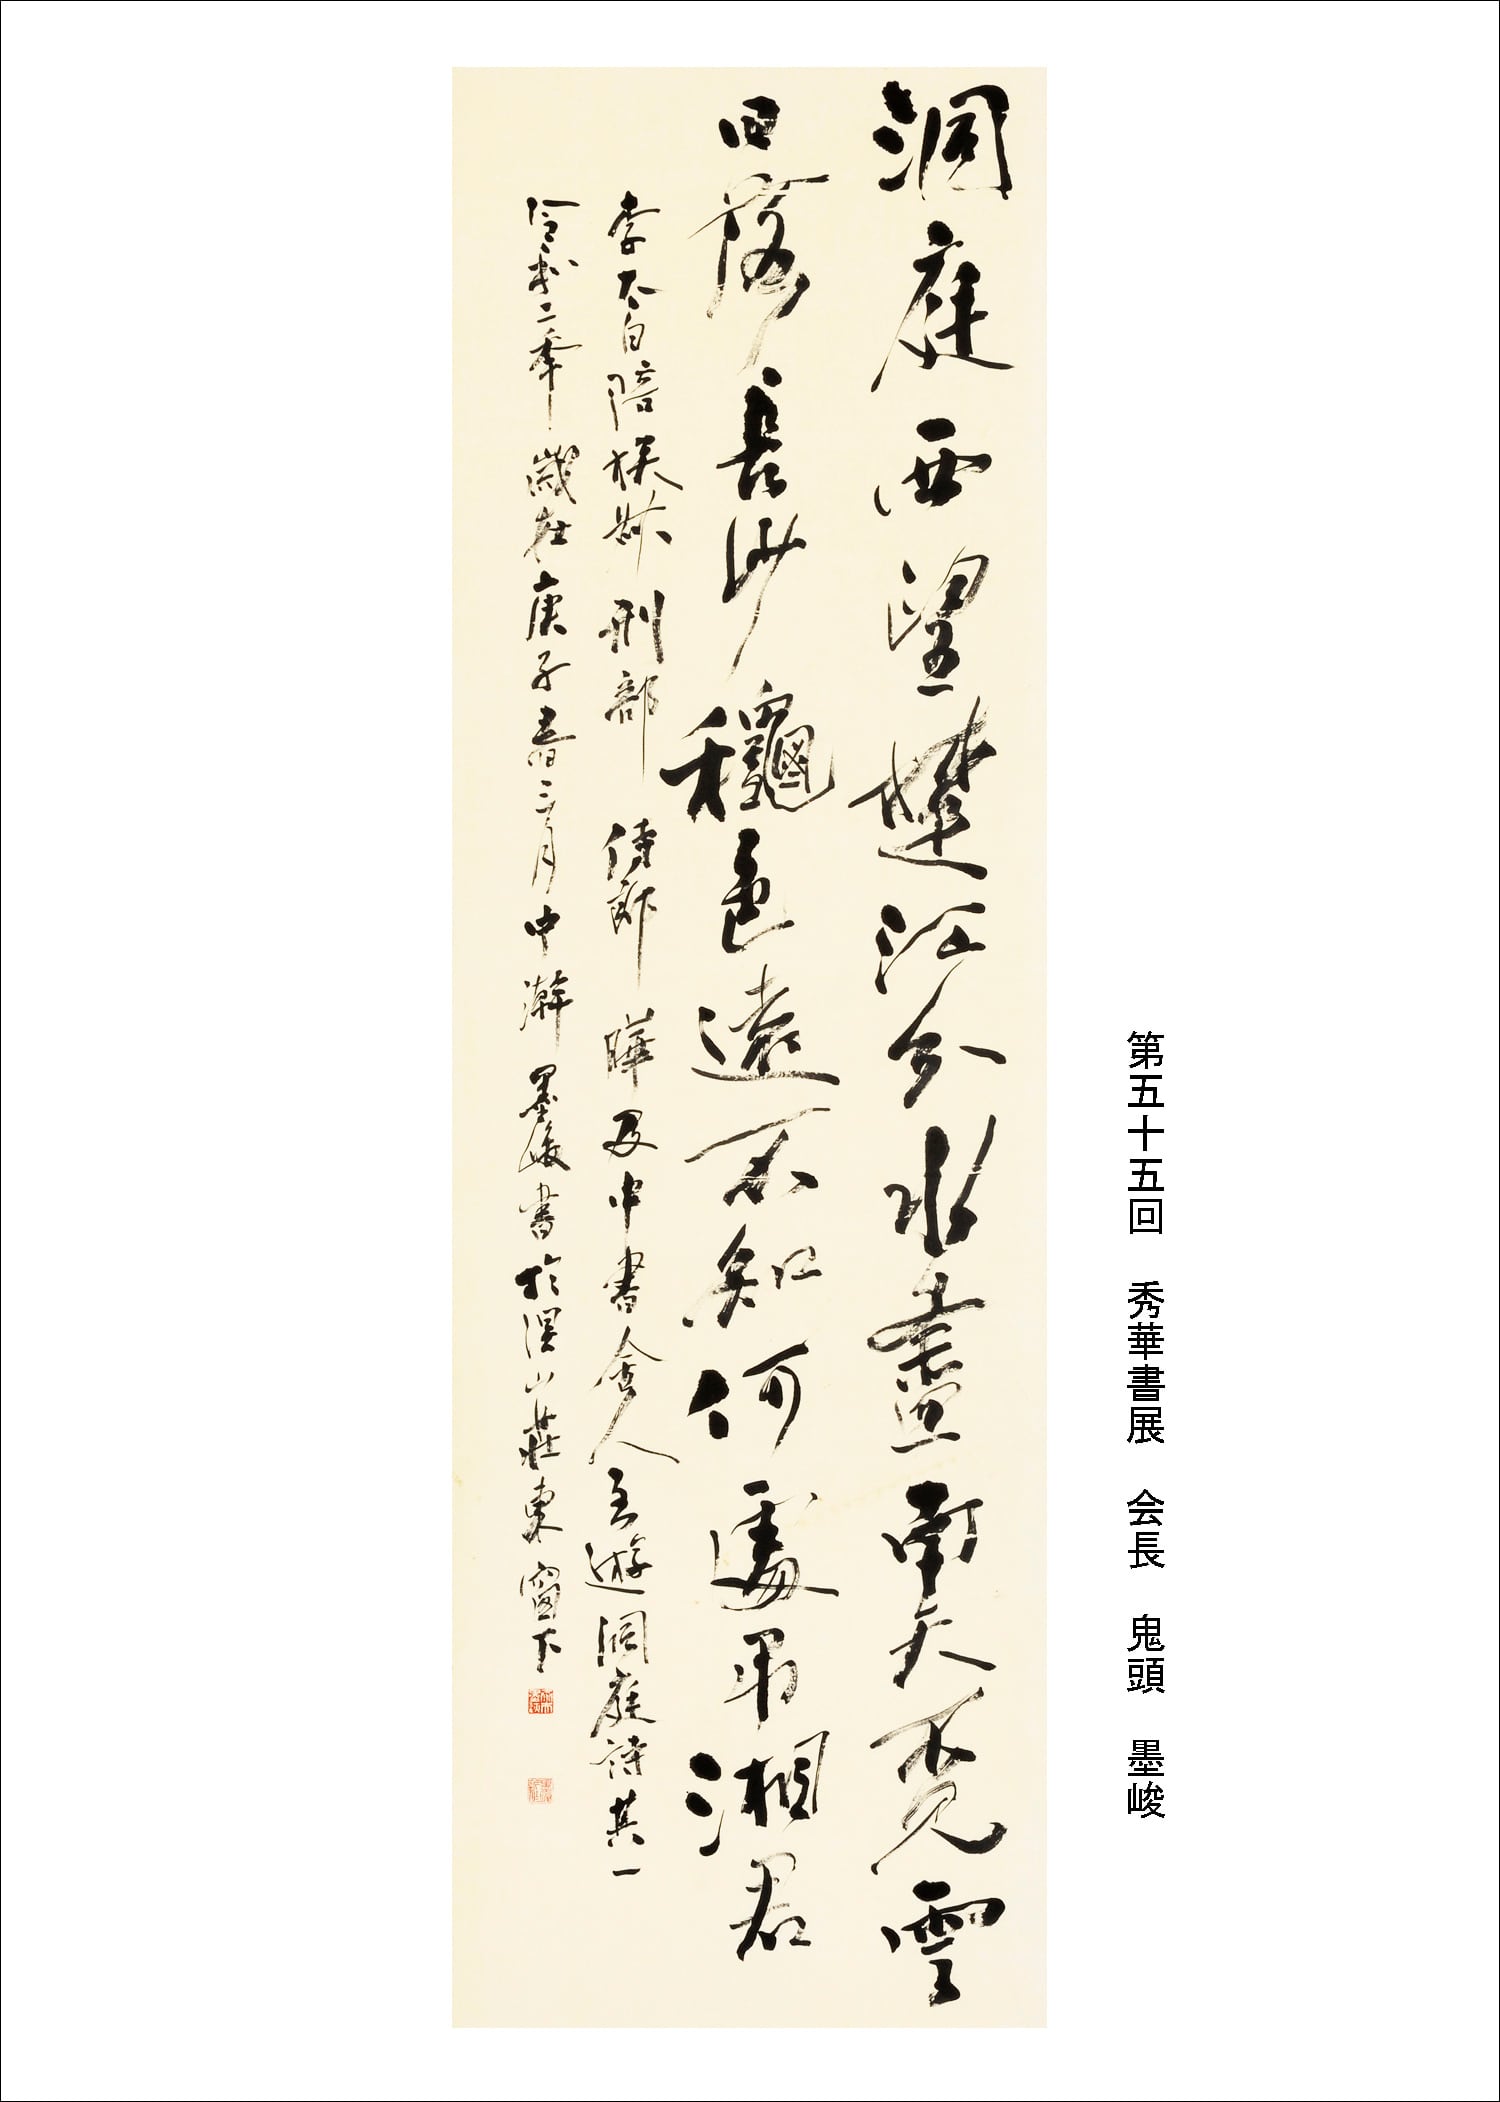 第五十五回　秀華書展　会長　鬼頭　墨峻
洞庭西望楚江分水盡南天不見雲
日落長沙穐色遠不知何處弔湘君
李太白陪族叔刑部侍郎曄及中書舎人至遊洞庭詩其一
令和二年歲在庚子春三月中澣墨峻書於溟山莊東窗下